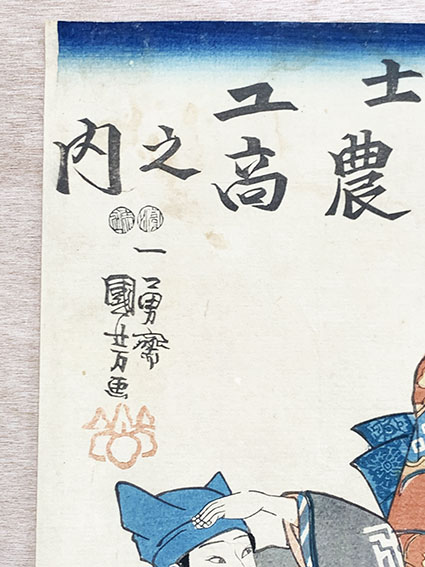 士農
工商
之
内
一勇齋
國芳画